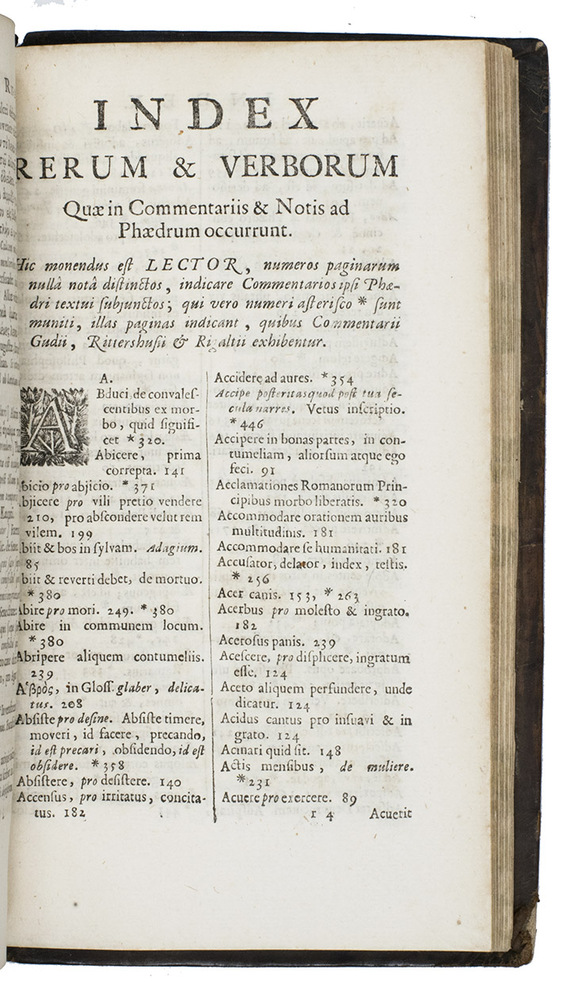 INDEX
RERUM & VERBORUM
Quæ in Commentariis & Notis ad
Phædrum occurrunt.
Hic monendus eſt LECTOR, numeros paginarum
nullâ notâ diſtinctos, indicare Commentarios ipſi Phæ-
dri textui ſubjunctos; qui vero numeri aſteriſco * ſunt
muniti, illas paginas indicant, quibus Commentarii
Gudii, Rittershuſii & Rigaltii exhibentur.
A.
ABduci de convaleſ-
centibus ex mor-
bo, quid ſignifi-
cet * 320.
Abicere, prima
correpta. 141
bicio pro abjicio. * 371
bjicere pro vili pretio vendere
210, pro abſcondere velut rem
vilem. 199
biit & bos in ſylvam. Adagium.
85
biit & reverti debet, de mortuo.
* 380
Abire pro mori. 249. * 380
Abire in communem locum.
* 380
Abripere aliquem contumeliis.
239
Ἁβρὸς, in Gloſſ. glaber, delica-
tus. 208
Abſiſte pro deſine. Abſiſte timere,
moveri, id facere, precando,
id eſt precari, obſidendo, id eſt
obſidere. * 358
Abſiſtere, pro deſiſtere. 140
Accenſus, pro irritatus, concita-
tus. 182
Accidere ad aures. * 354
Accipe poſteritas quod poſt tua ſe-
cula narres. Vetus inſcriptio.
* 446
Accipere in bonas partes, in con-
tumeliam, aliorſum atque ego
feci. 91
Acclamationes Romanorum Prin-
cipibus morbo liberatis. * 320
Accommodare orationem auribus
multitudinis. 181
Accommodare ſe humanitati. 181
Accuſator, delator, index, teſtis.
* 256
Acer canis. 153, * 263
Acerbus pro moleſto & ingrato.
182
Aceroſus panis. 239
Aceſcere, pro diſplicere, ingratum
eſſe. 124
Aceto aliquem perfundere, unde
dicatur. 124
Acidus cantus pro inſuavi & in
grato. 124
Acinari quid ſit. 148
Actis menſibus, de muliere.
* 231
Acuere pro exercere. 89
r 4 Acuerit